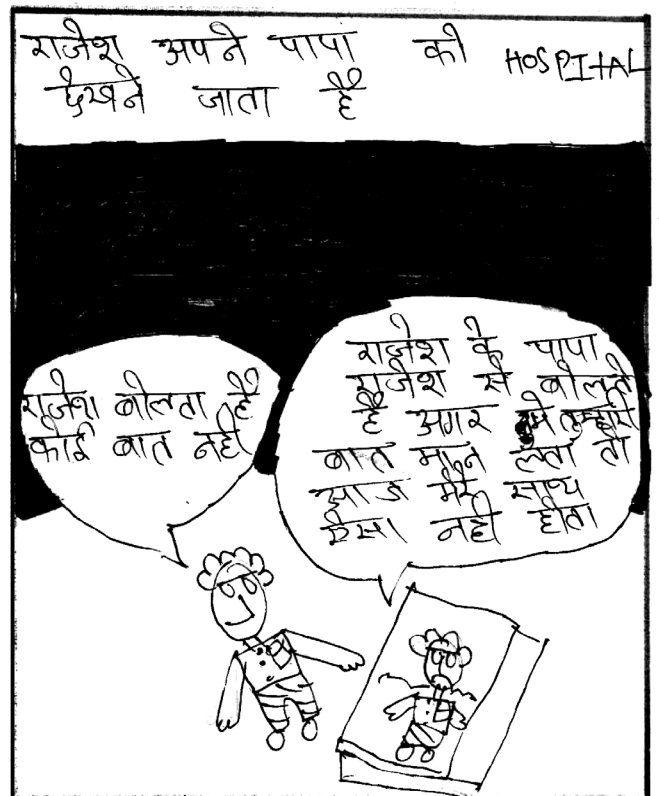 राजेश अपने पापा को HOSPITAL
देखने जाता है
राजेश बोलता है
कोई बात नही
राजेश के पापा
राजेश से बोलते
है अगर मे तुम्हारी
बात मान लेता तो
आज मेरे साथ
ऐसा नही होता